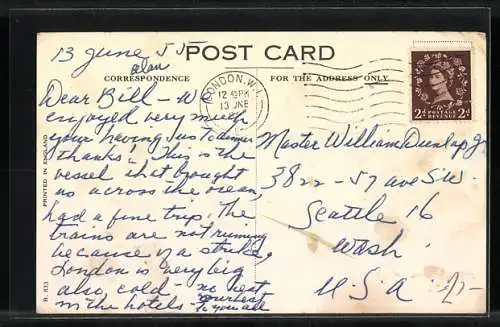 13 June 55
POST CARD
CORRESPONDENCE
FOR THE ADDRESS ONLY
LONDON. W.1
12 45PM
13 JNE
2d POSTAGE 2d
REVENUE
Dear Bill - We
enjoyed very much
your having us to dinner
thanks! This is the
vessel that brought
us across the ocean,
had a fine trip. The
trains are not running
because of a strike,
London is very big
also, cold - no heat
in the hotels -
our best
to you all
Master William Dunlap Jr.
3822 - 57 ave SW.
Seattle 16
Wash
U.S.A
PRINTED IN ENGLAND